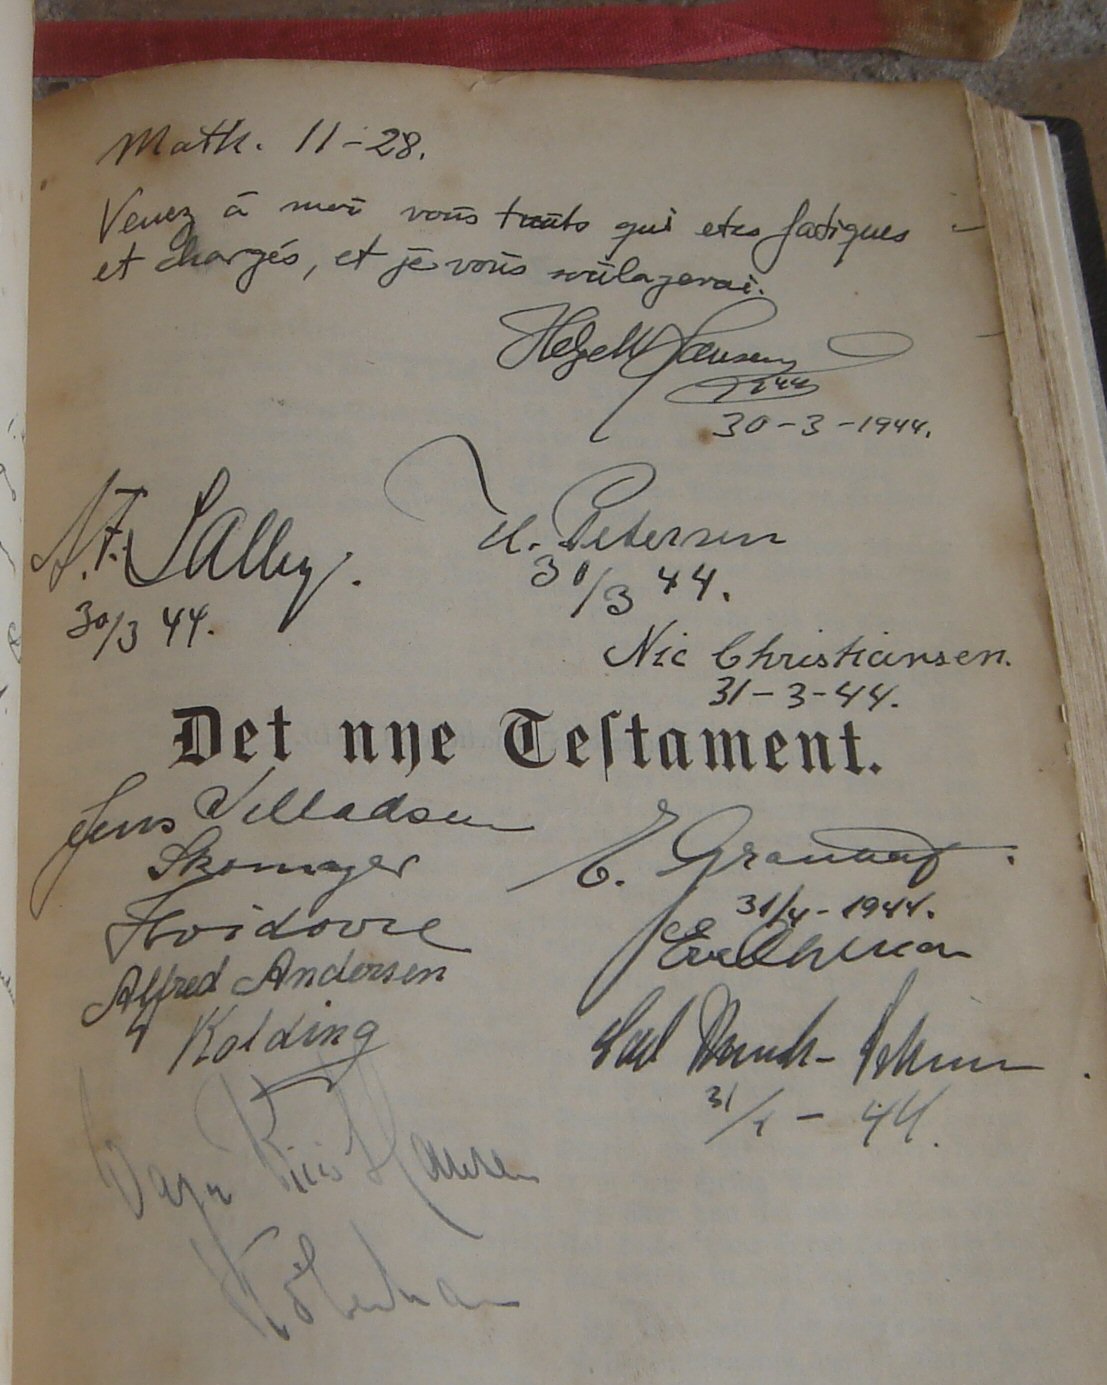 Math. 11-28.
Venez à moi vous touts qui etes fatigues
et chargés, et je vous soulagerai.
Helge Hansen
30-3-1944.
N.F. Sally.
30/3 44.
H. Petersen
30/3 44.
Nic Christiansen.
31-3-44.
Det nye Testament.
Jens Villadsen
Skomager
E.
Hvidovre
31/4-1944.
Alfred Andersen
Kolding
Carl Munch-
31/ - 44.
Riis Hansen